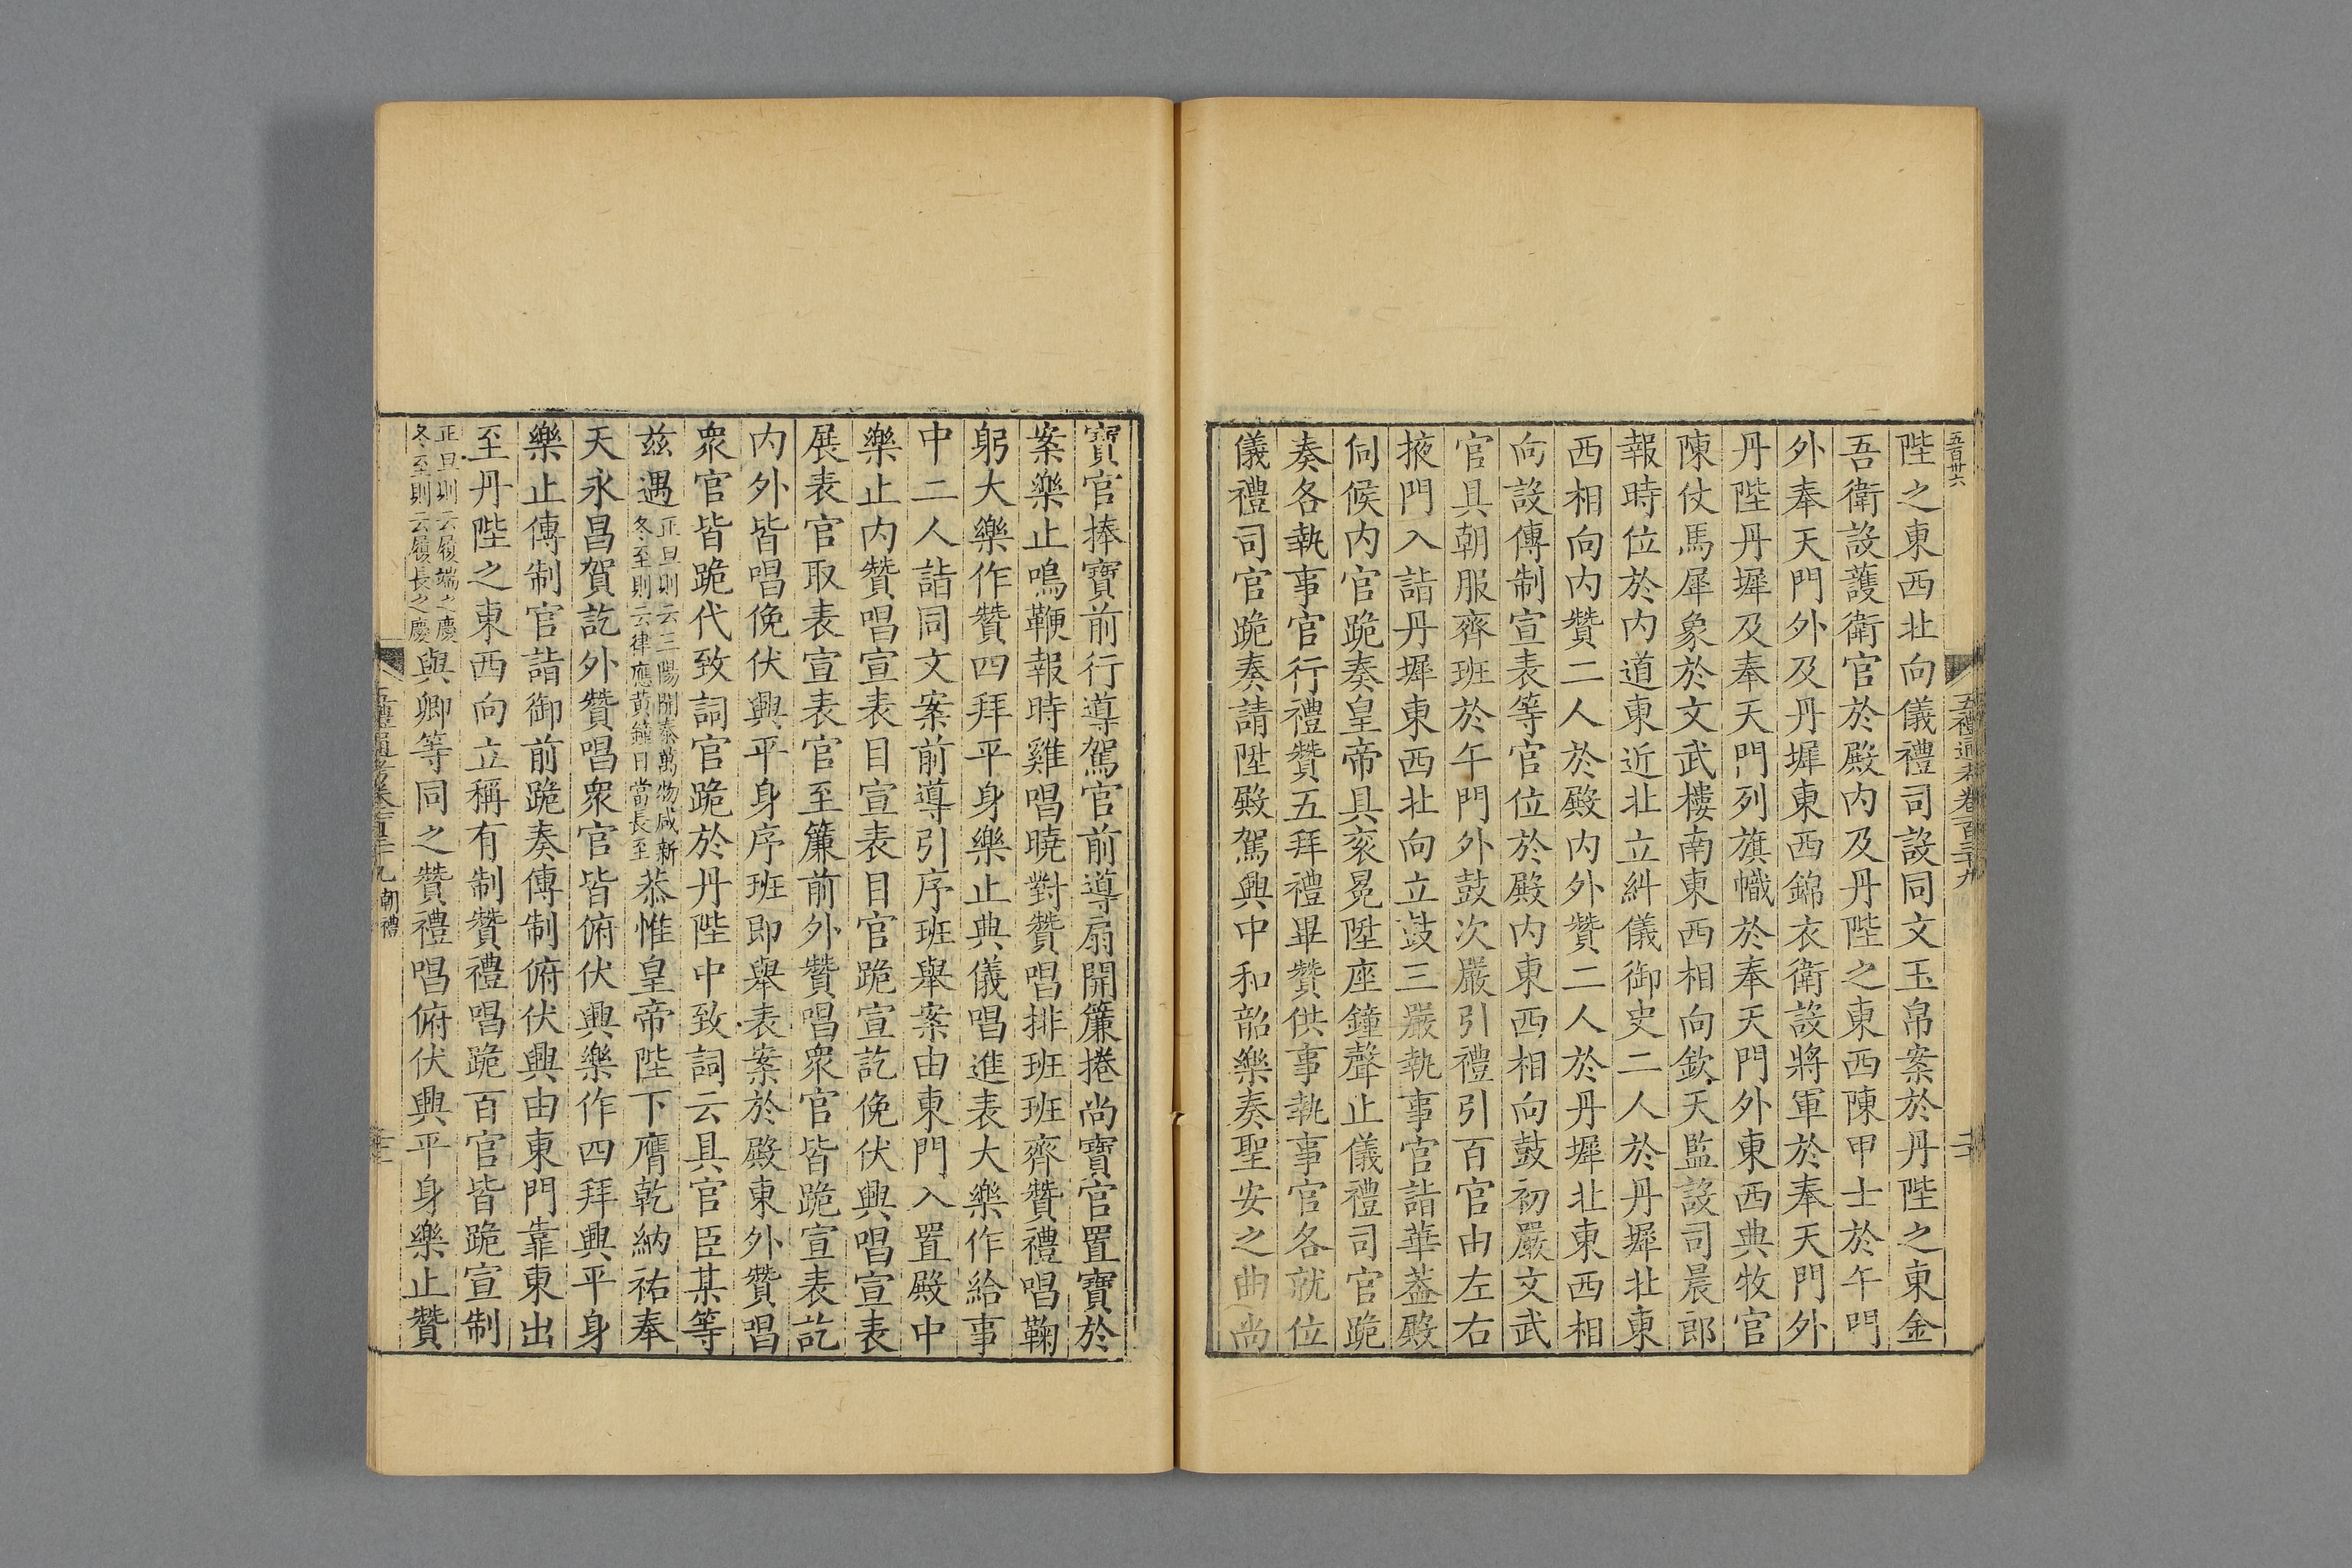 五百廿六
五禮通考卷一百三十九
陛之東西北向儀禮司設同文玉帛案於丹陛之東金
吾衛設護衛官於殿內及丹陛之東西陳甲士於午門
外奉天門外及丹墀東西錦衣衛設將軍於奉天門外
丹陛丹墀及奉天門列旗幟於奉天門外東西典牧官
陳仗馬犀象於文武樓南東西相向欽天監設司晨郎
報時位於內道東近北立糾儀御史二人於丹墀北東
西相向內贊二人於殿內外贊二人於丹墀北東西相
向設傳制宣表等官位於殿內東西相向鼓初嚴文武
官具朝服齊班於午門外鼓次嚴引禮引百官由左右
掖門入詣丹墀東西北向立鼓三嚴執事官詣華蓋殿
伺候內官跪奏皇帝具衮冕陞座鐘聲止儀禮司官跪
奏各執事官行禮贊五拜禮畢贊供事執事官各就位
儀禮司官跪奏請陞殿駕興中和韶樂奏聖安之曲尚
寶官捧寶前行導駕官前導扇開簾捲尚寶官置寶於
案樂止鳴鞭報時雞唱曉對贊唱排班班齊贊禮唱鞠
躬大樂作贊四拜平身樂止典儀唱進表大樂作給事
中二人詣同文案前導引序班舉案由東門入置殿中
樂止內贊唱宣表目宣表目官跪宣訖俛伏興唱宣表
展表官取表宣表官至簾前外贊唱眾官皆跪宣表訖
內外皆唱俛伏興平身序班即舉表案於殿東外贊唱
眾官皆跪代致詞官跪於丹陛中致詞云具官臣某等
茲遇正旦則云三陽開泰萬物咸新
冬至則云律應黃鐘日當長至恭惟皇帝陛下膺乾納祐奉
天永昌賀訖外贊唱眾官皆俯伏興樂作四拜興平身
樂止傳制官詣御前跪奏傳制俯伏興由東門靠東出
至丹陛之東西向立稱有制贊禮唱跪百官皆跪宣制
正旦則云履端之慶
冬至則云履長之慶與卿等同之贊禮唱俯伏興平身樂止贊
朝禮